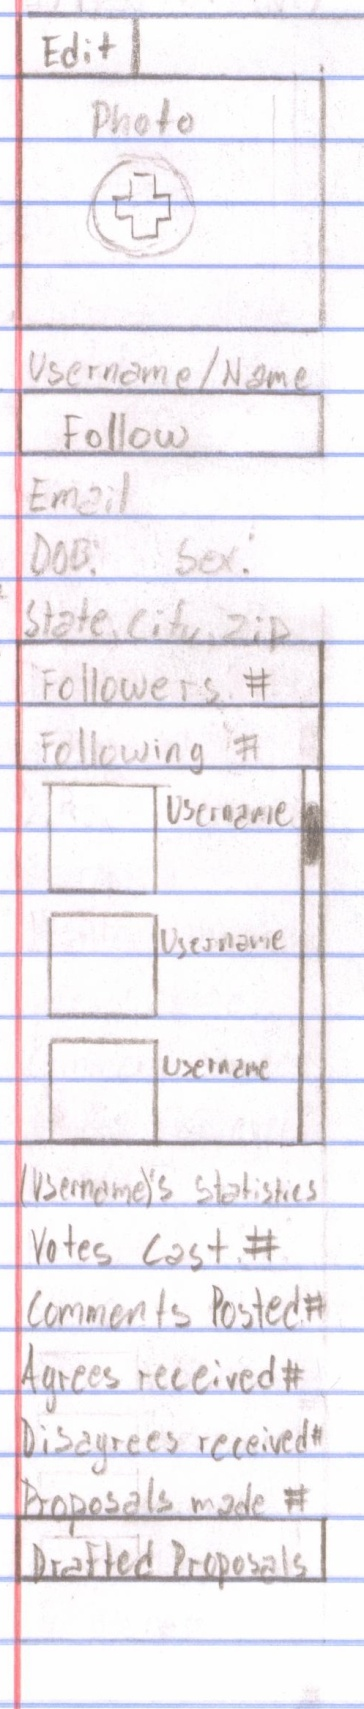 Edit
Photo
Username/Name
Follow
Email
DOB: Sex:
State, City, Zip
Followers #
Following #
Username
Username
Username
(Username)'s Statistics
Votes Cast #
Comments Posted #
Agrees received #
Disagrees received #
Proposals made #
Drafted Proposals